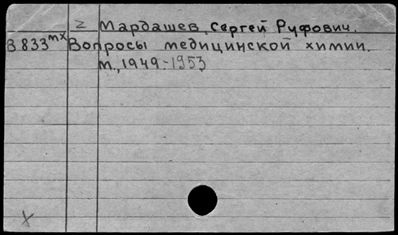 2 Мардашев, Сергей Руфович.
В 833 мх Вопросы медицинской химии.
М., 1949.-1953
X